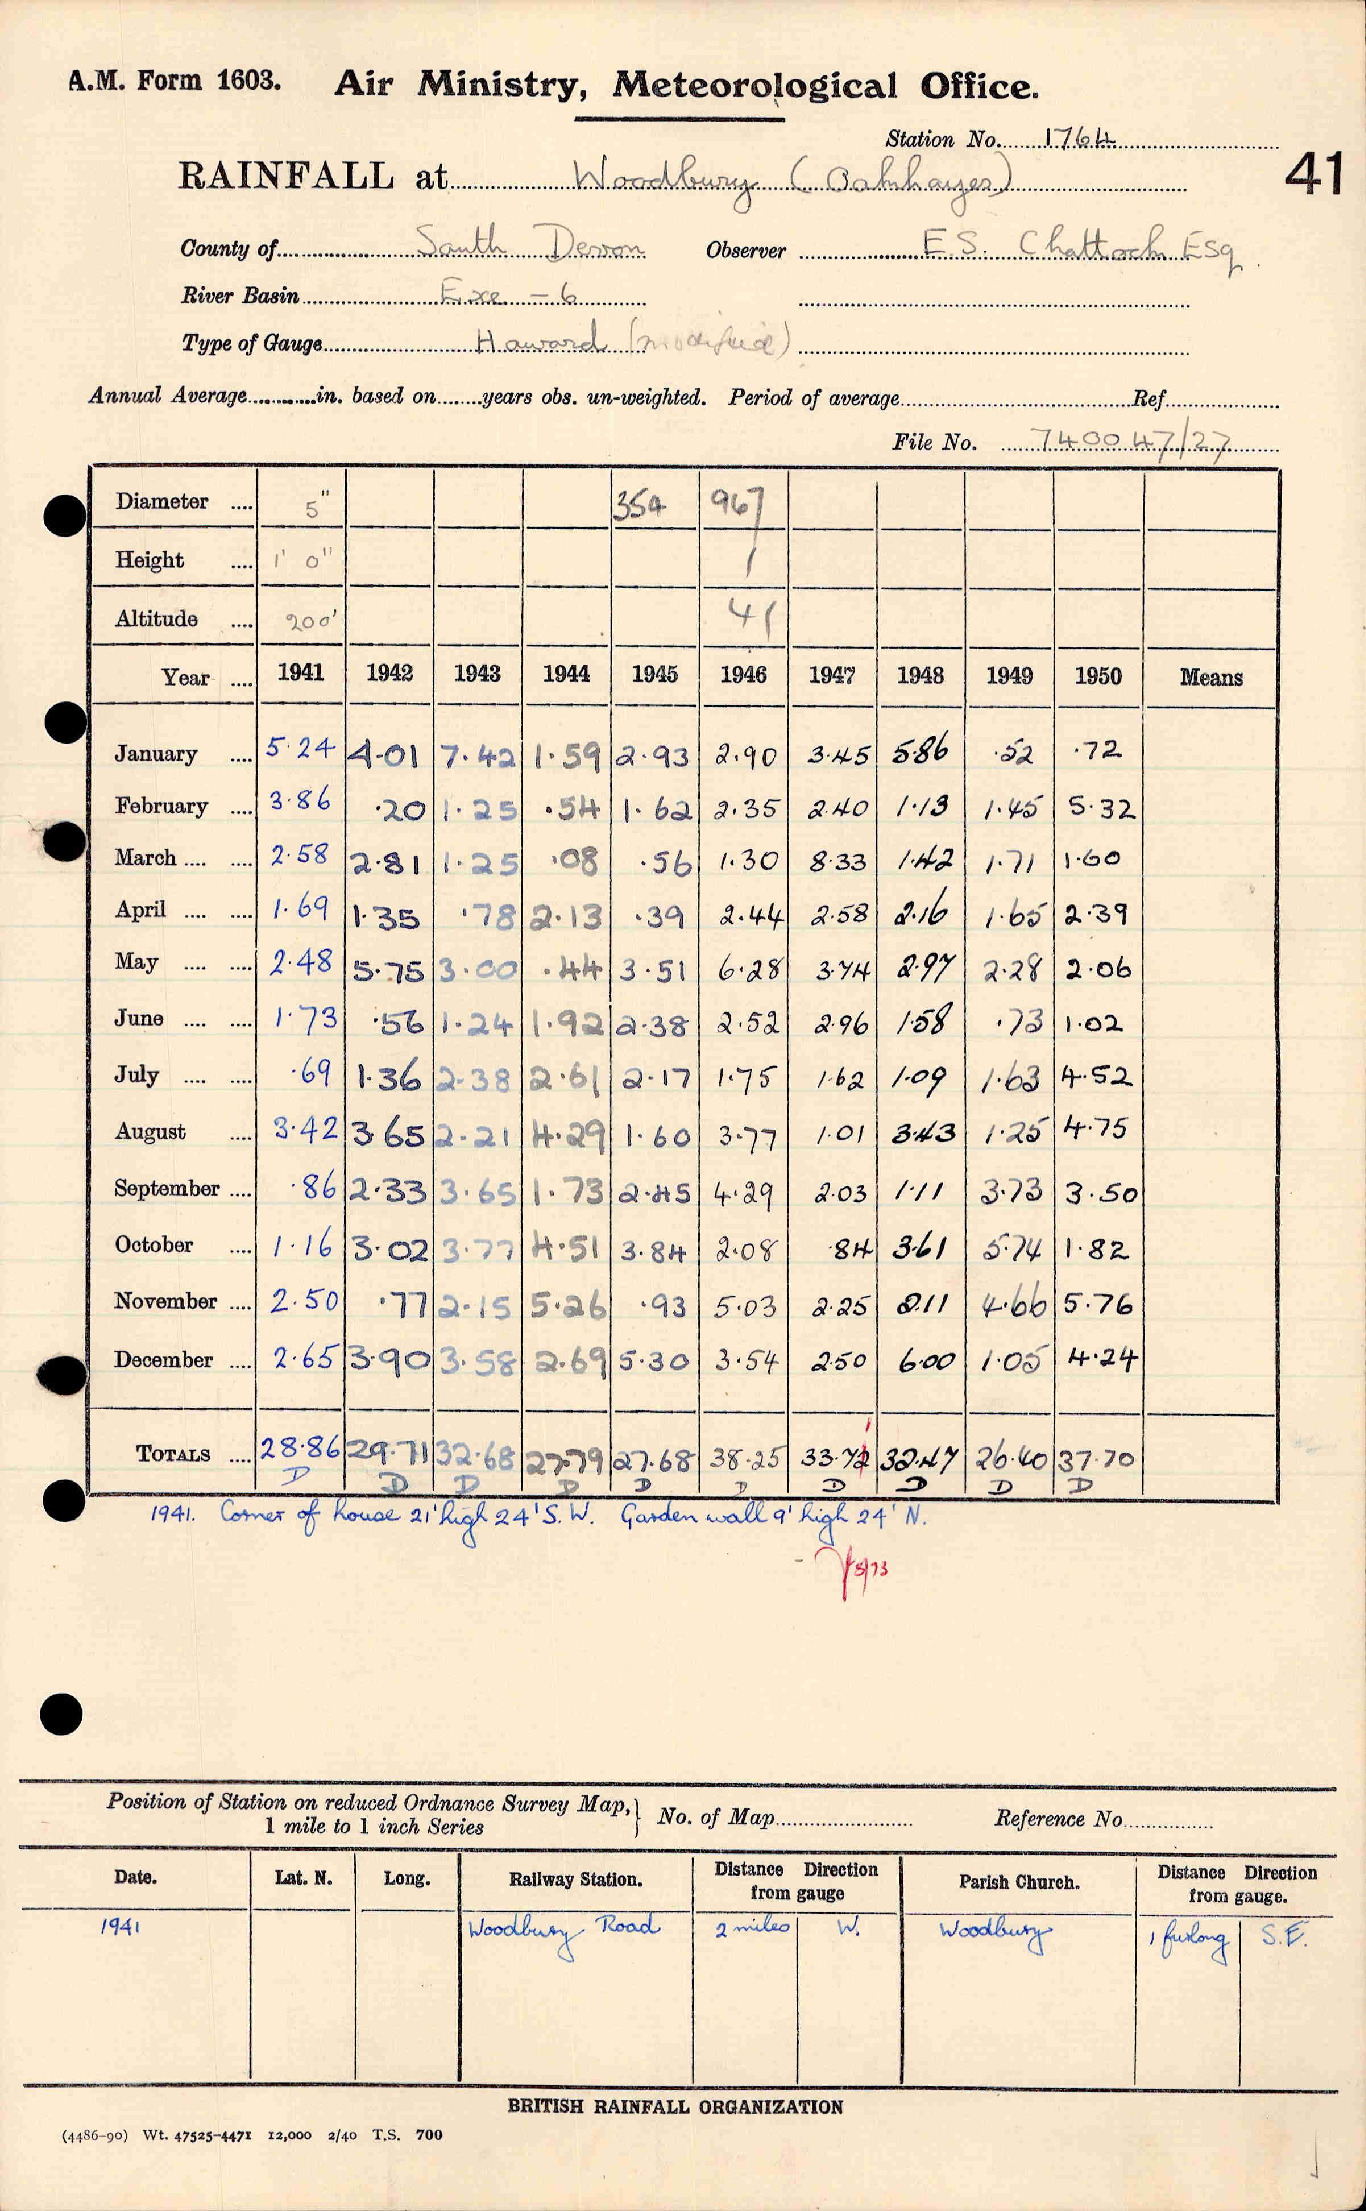 A.M. Form 1603. Air Ministry, Meteorological Office.
Station No. 1764
41
RAINFALL at Woodbury (Oakhayes)
County of South Devon Observer E.S. Chattock Esq.
River Basin Exe - 6
Type of Gauge Howard (modified)
Annual Average in. based on years obs. un-weighted. Period of average Ref.
File No. 740047/27
Diameter .... 5" 354 967
Height .... 1' 0" 1
Altitude .... 200' 41
Year .... 1941 1942 1943 1944 1945 1946 1947 1948 1949 1950 Means
January .... 5.24 4.01 7.42 1.59 2.93 2.90 3.45 5.86 .52 .72
February .... 3.86 .20 1.25 .54 1.62 2.35 2.40 1.13 1.45 5.32
March .... .... 2.58 2.81 1.25 .08 .56 1.30 8.33 1.42 1.71 1.60
April .... .... 1.69 1.35 .78 2.13 .39 2.44 2.58 2.16 1.65 2.39
May .... .... 2.48 5.75 3.00 .44 3.51 6.28 3.74 2.97 2.28 2.06
June .... .... 1.73 .56 1.24 1.92 2.38 2.52 2.96 1.58 .73 1.02
July .... .... .69 1.36 2.38 2.61 2.17 1.75 1.62 1.09 1.63 4.52
August .... 3.42 3.65 2.21 4.29 1.60 3.77 1.01 3.43 1.25 4.75
September .... .86 2.33 3.65 1.73 2.45 4.29 2.03 1.11 3.73 3.50
October .... 1.16 3.02 3.77 4.51 3.84 2.08 .84 3.61 5.74 1.82
November .... 2.50 .77 2.15 5.26 .93 5.03 2.25 2.11 4.66 5.76
December .... 2.65 3.90 3.58 2.69 5.30 3.54 2.50 6.00 1.05 4.24
TOTALS .... 28.86 29.71 32.68 27.79 27.68 38.25 33.71 32.47 26.40 37.70
D D D D D D D D D D
1941. Corner of house 21' high 24' S.W. Garden wall 9' high 24' N.
5/73
Position of Station on reduced Ordnance Survey Map, } No. of Map Reference No.
1 mile to 1 inch Series
Date. Lat. N. Long. Railway Station. Distance Direction from gauge Parish Church. Distance Direction from gauge.
1941 Woodbury Road 2 miles W. Woodbury 1 furlong S.E.
BRITISH RAINFALL ORGANIZATION
(4486-90) Wt. 47525-4471 12,000 2/40 T.S. 700